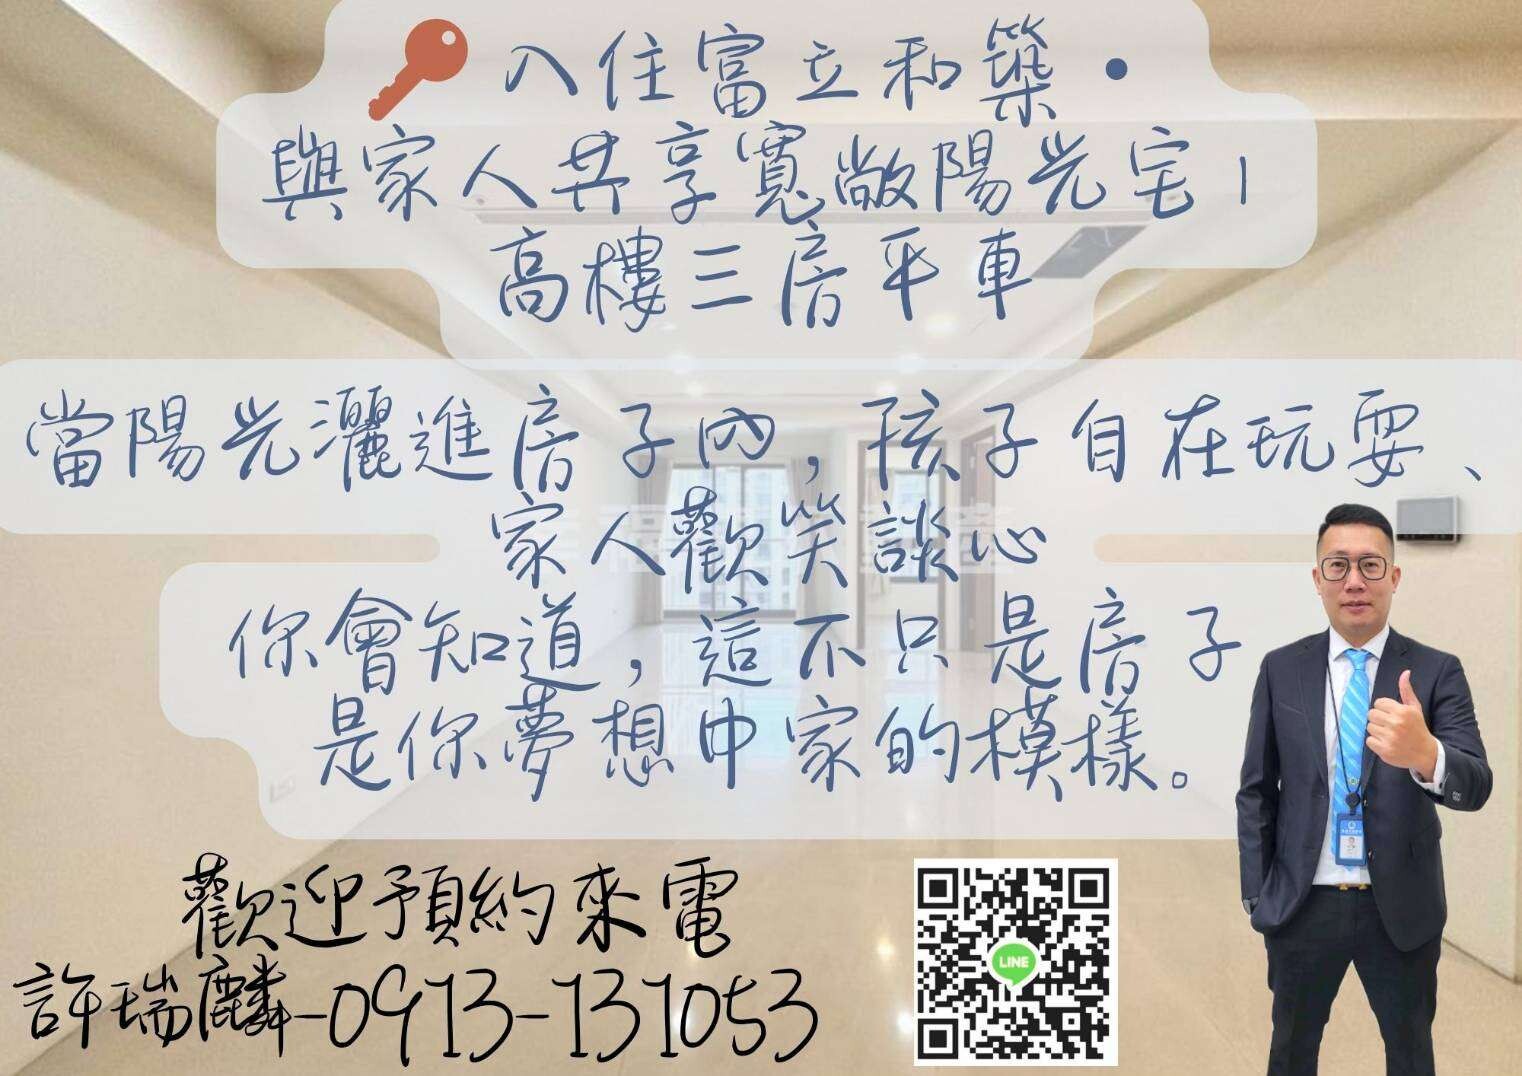 入住富立和築·
與家人共享寬敞陽光宅|
高樓三房平車
當陽光灑進房子內,孩子自在玩耍、
家人歡笑談心
你會知道,這不只是房子
是你夢想中家的模樣。
歡迎預約來電
許瑞麟-0913-131053
LINE